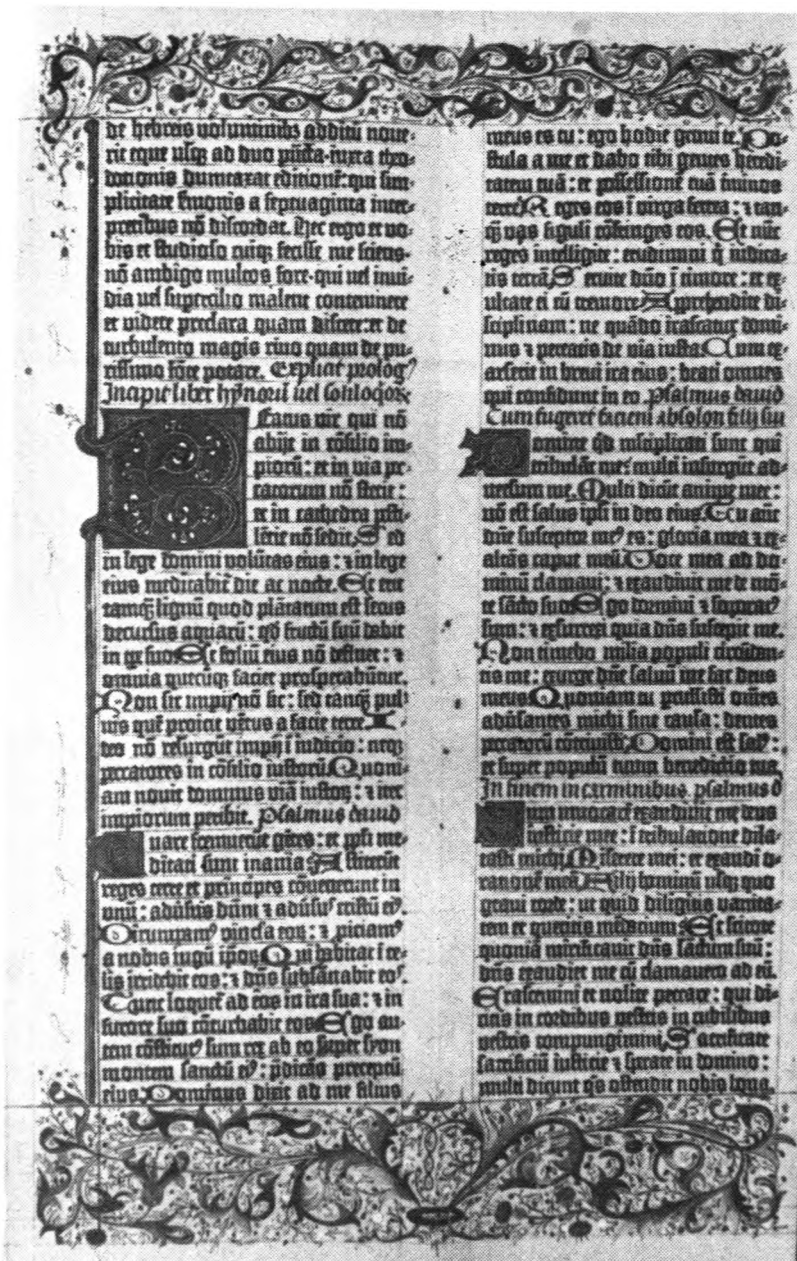 de hebreis voluminibꝫ additū noue-
rit eque usqꝫ ad duo pūcta · iuxta theo-
dotionis dumtaxat editionē: qui sim-
plicitate s̄monis a septuaginta inter-
pretibus nō discordat. Hec ergo et vo-
bis et studioso cuiqꝫ fecisse me sciens ·
nō ambigo multos fore · qui vel invi-
dia vel supercilio malent contemnere
et videre preclara quam discere: et de
turbulento magis rivo quam de pu-
rissimo fōte potare. Explicit prolog⁹
Incipit liber hymnorū vel soliloquioꝝ
Beatus vir qui nō
abijt in cōsilio im-
piorū: et in via pec-
catorum nō stetit:
et in cathedra pesti-
lētie nō sedit. Sed
in lege domini volūtas eius: ⁊ in lege
eius meditabit̄ die ac nocte. Et erit
tamqꝫ lignū quod plātatum est secus
decursus aquarū: qd̄ fructū suū dabit
in tp̄e suo Et foliū eius nō defluet: ⁊
omnia quecūqꝫ faciet prosperabūtur.
Non sic impij nō sic: sed tanqꝫ pul-
vis quē proicit vētus a facie terre. I-
deo nō resurgūt impij ī iudicio: neqꝫ
peccatores in cōsilio iustorū Quoni-
am novit dominus viā iustoꝝ: ⁊ iter
impiorum peribit. Psalmus david
Quare fremuerūt gētes: et ppl̄i me-
ditati sunt inania. Astiterūt
reges terre et principes cōvenerunt in
unū: adūsus dn̄m ⁊ adūsus cristū ei⁹.
Dirumpam⁹ vincl̄a eoꝝ: ⁊ ꝓiciam⁹
a nobis iugū ip̄oꝝ Qui habitat ī ce-
lis irridebit eos: ⁊ dn̄s subsānabit eos.
Tunc loquet̄ ad eos in ira sua: ⁊ in
furore suo cōturbabit eos Ego au-
tem cōstitut⁹ sum rex ab eo super syon
montem sanctū ei⁹: p̄dicās preceptū
eius. Dominus dixit ad me filius
meus es tu: ego hodie genui te. Po-
stula a me et dabo tibi gentes heredi-
tatem tuā: et possessionē tuā īminos
terre Reges eos ī virga ferrea: ⁊ tan-
qꝫ vas figuli cōfringes eos. Et nūc
reges intelligite: erudimini q̄ iudica-
tis terrā. Servite dn̄o ī timore: et ex-
ultate ei cū tremore Apprehendite di-
sciplinam: ne quādo irascatur domi-
nus ⁊ pereatis de via iusta. Cum ex-
arserit in brevi ira eius: beati omnes
qui confidunt in eo. Psalmus david
Cum fugeret faciem absolon filij sui
Domine qd̄ multiplicati sunt qui
tribulāt me: multi insurgūt ad-
versum me. Multi dicūt anime mee:
nō est salus ipsi in deo eius. Tu autē
dn̄e susceptor me⁹ es: gloria mea ⁊ ex-
altās caput meū. Voce mea ad do-
minū clamavi: ⁊ exaudivit me de mō-
te sācto suo Ego dormivi ⁊ soporat⁹
sum: ⁊ exsurrexi quia dn̄s suscepit me.
Non timebo milia populi circūdan-
tis me: exurge dn̄e salvū me fac deus
meus Quoniam tu percussisti om̄es
adūsantes michi sine causa: dentes
peccatorū cōtrivisti. Domini est sal⁹:
et super populū tuum benedictio tua.
In finem in carminibus. psalmus d
Cum invocarē exaudivit me deus
iusticie mee: ī tribulatione dila-
tasti michi. Miserere mei: et exaudi o-
rationē meā Filij hominū usqꝫ quo
gravi corde: ut quid diligitis vanita-
tem et queritis mēdacium: Et scitote
quoniā mirificavit dn̄s sāctum suū:
dn̄s exaudiet me cū clamavero ad eū.
Irascimini et nolite peccare: qui di-
citis in cordibus vestris in cubilibus
vestris compungimini. Sacrificate
sacrificiū iusticie ⁊ sperate in domino:
multi dicunt q̄s ostendit nobis bona.